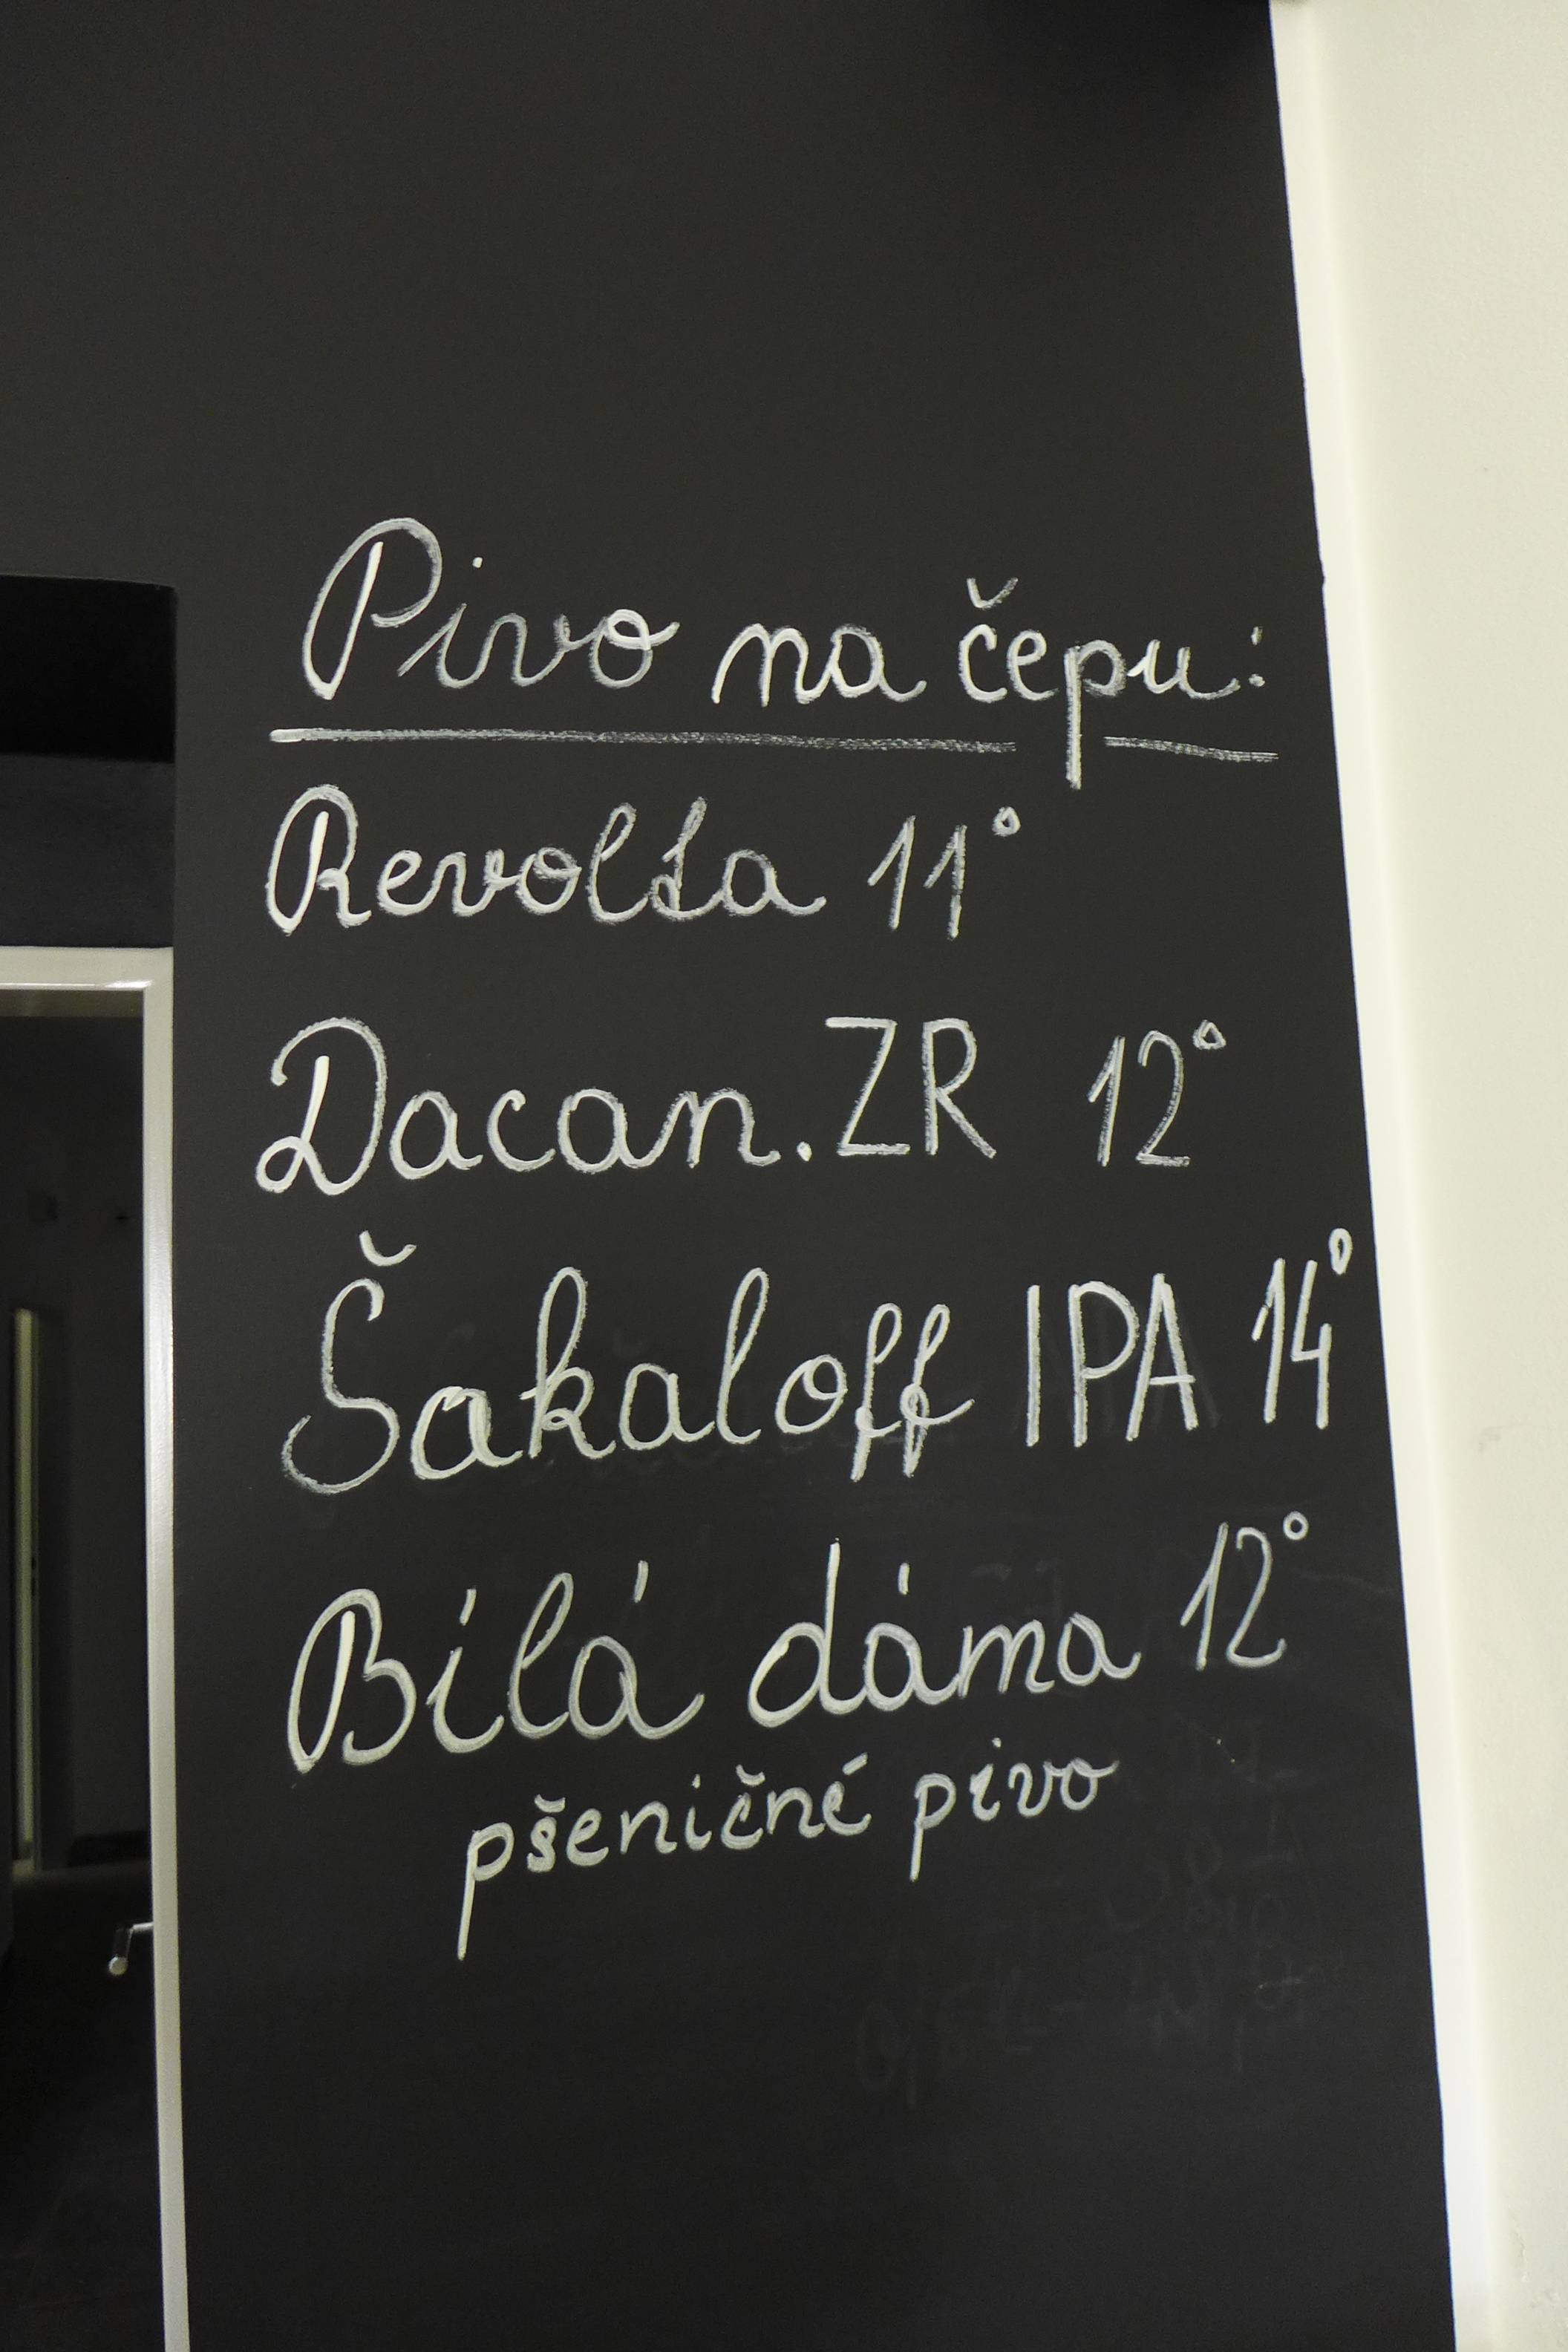 Pivo na čepu:
Revolta 11°
Dacan.ZR 12°
Šakaloff IPA 14°
Bílá dáma 12°
pšeničné pivo